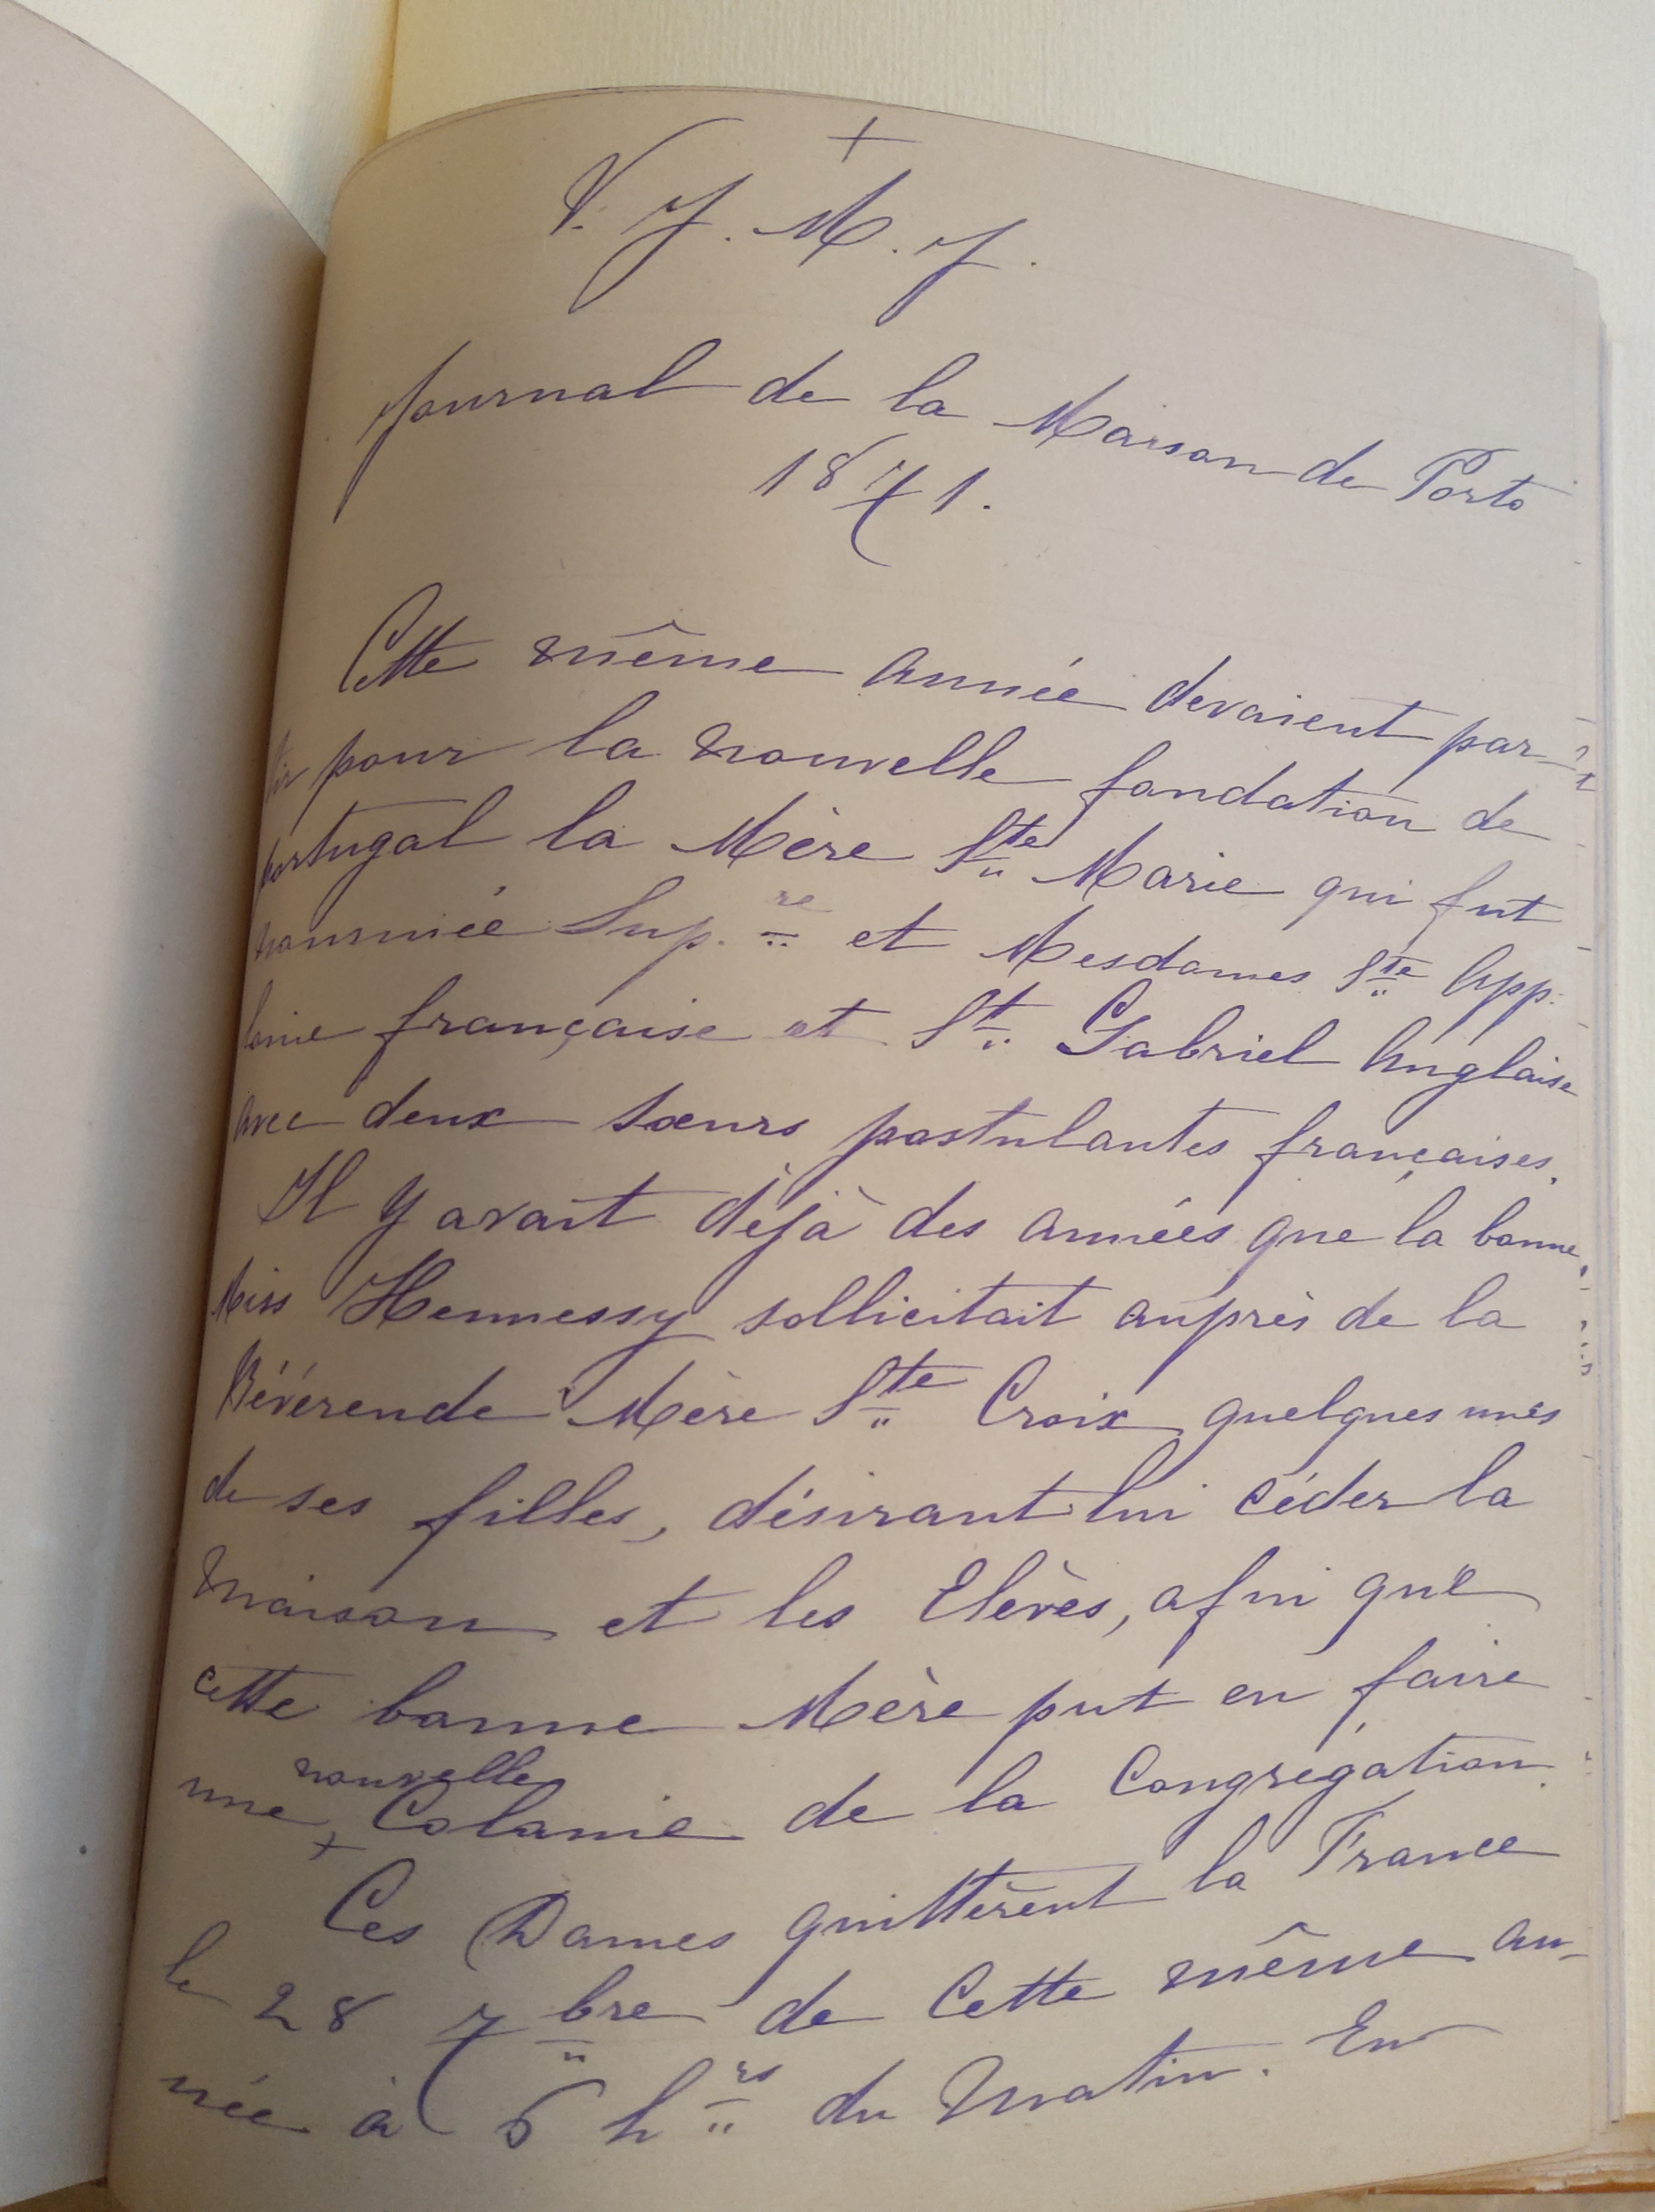 +
V. J. M. J.
Journal de la Maison de Porto
1871.
Cette même année devaient par-
tir pour la nouvelle fondation de
Portugal la Mère Ste Marie qui fut
nommée Sup.re et Mesdames Ste App.
lonie française et St. Gabriel Anglaise
avec deux sœurs postulantes françaises.
Il y avait déjà des années que la bonne
Miss Hennessy sollicitait auprès de la
Révérende Mère Ste Croix quelques unes
de ses filles, désirant lui céder la
maison et les Elèves, afin que
cette bonne Mère put en faire
nouvelle
une + Colonie de la Congrégation.
Ces Dames quittèrent la France
le 28 7bre de Cette même an-
née à 6 hrs du matin. En